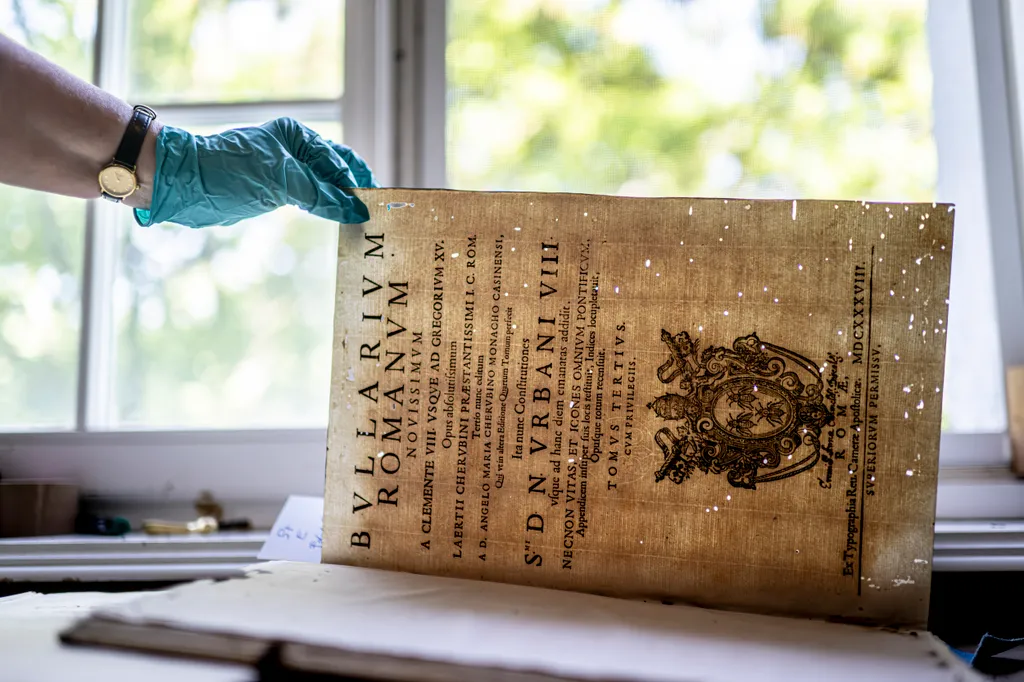 BVLLARIVM
ROMANVM
NOVISSIMVM
A CLEMENTE VIII. VSQVE AD GREGORIVM XV.
Opus absolutissimum
LAERTII CHERVBINI PRÆSTANTISSIMI I. C. ROM.
Tertio nunc editum
A D. ANGELO MARIA CHERVBINO MONACHO CASINENSI,
Qui vt in altera Editione Quartum Tomum perfecit
Ita nunc Constitutiones
S.MI D. N. VRBANI VIII.
vsque ad hanc diem emanatas addidit.
NECNON VITAS, ET ICONES OMNIVM PONTIFICVM.
Appendicem insuper suis locis restituit, Indices locupletauit,
Opusque totum recensuit.
TOMVS TERTIVS.
CVM PRIVILEGIIS.
ROMÆ,
Ex Typographia Reu. Cameræ Apostolicæ. MDCXXXVIII.
SVPERIORVM PERMISSV.